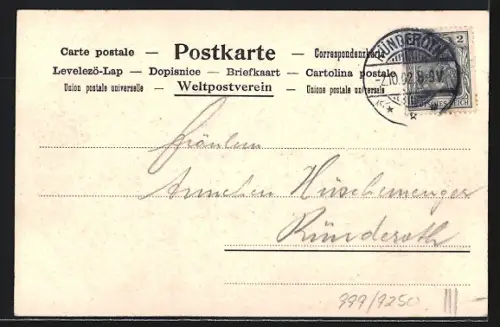 Carte postale — Postkarte — Correspondenzkarte
Levelezö-Lap — Dopisnice — Briefkaart — Cartolina postale
Union postale universelle — Weltpostverein — Unione postale universale
RÜNDEROTH
-2.10.02. 8-9V
2
Fräulein
Annchen Hüschemenger
Ründeroth
999/9250